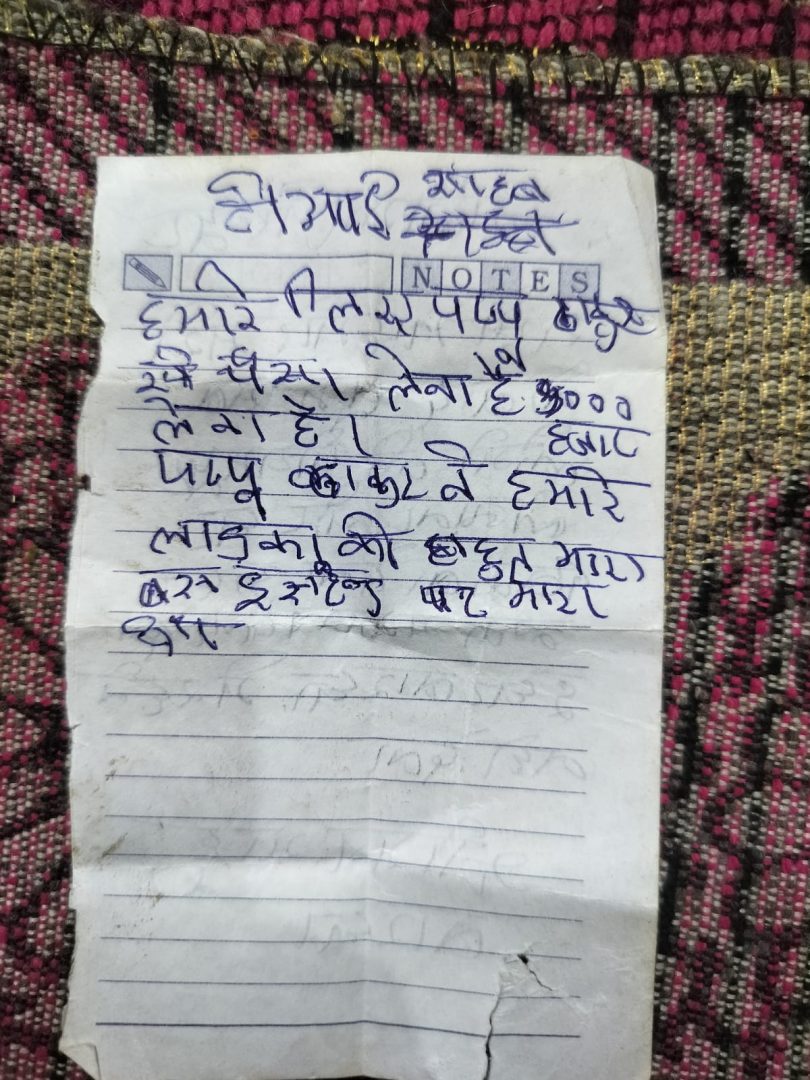 टीआई साहब
NOTES
हमारे लिए पप्पू ठाकुर
से पैसा लेना है 5000
लेना है। हजार
पप्पू ठाकुर ने हमारे
लाड़का को बहुत मारा
बस इसटेन्ड पर मारा